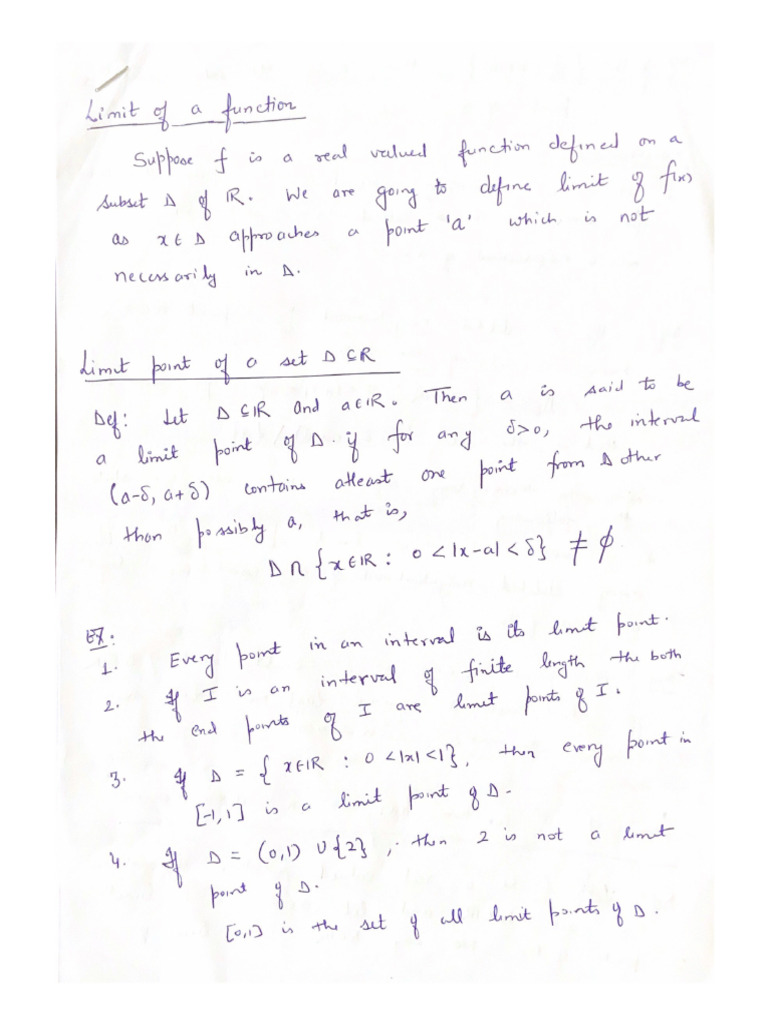 Limit of a function
Suppose f is a real valued function defined on a
subset D of ℝ. We are going to define limit of f(x)
as x ∈ D approaches a point 'a' which is not
necessarily in D.
Limit point of a set D ⊆ R
Def: Let D ⊆ ℝ and a ∈ ℝ. Then a is said to be
a limit point of D if for any δ>0, the interval
(a-δ, a+δ) contains atleast one point from D other
than possibly a, that is,
D ∩ {x ∈ ℝ : 0 < |x-a| < δ} ≠ φ
EX:
1. Every point in an interval is its limit point.
2. If I is an interval of finite length the both
the end points of I are limit points of I.
3. If D = { x ∈ ℝ : 0 < |x| < 1}, then every point in
[-1,1] is a limit point of D.
4. If D = (0,1) ∪ {2}, then 2 is not a limit
point of D.
[0,1] is the set of all limit points of D.